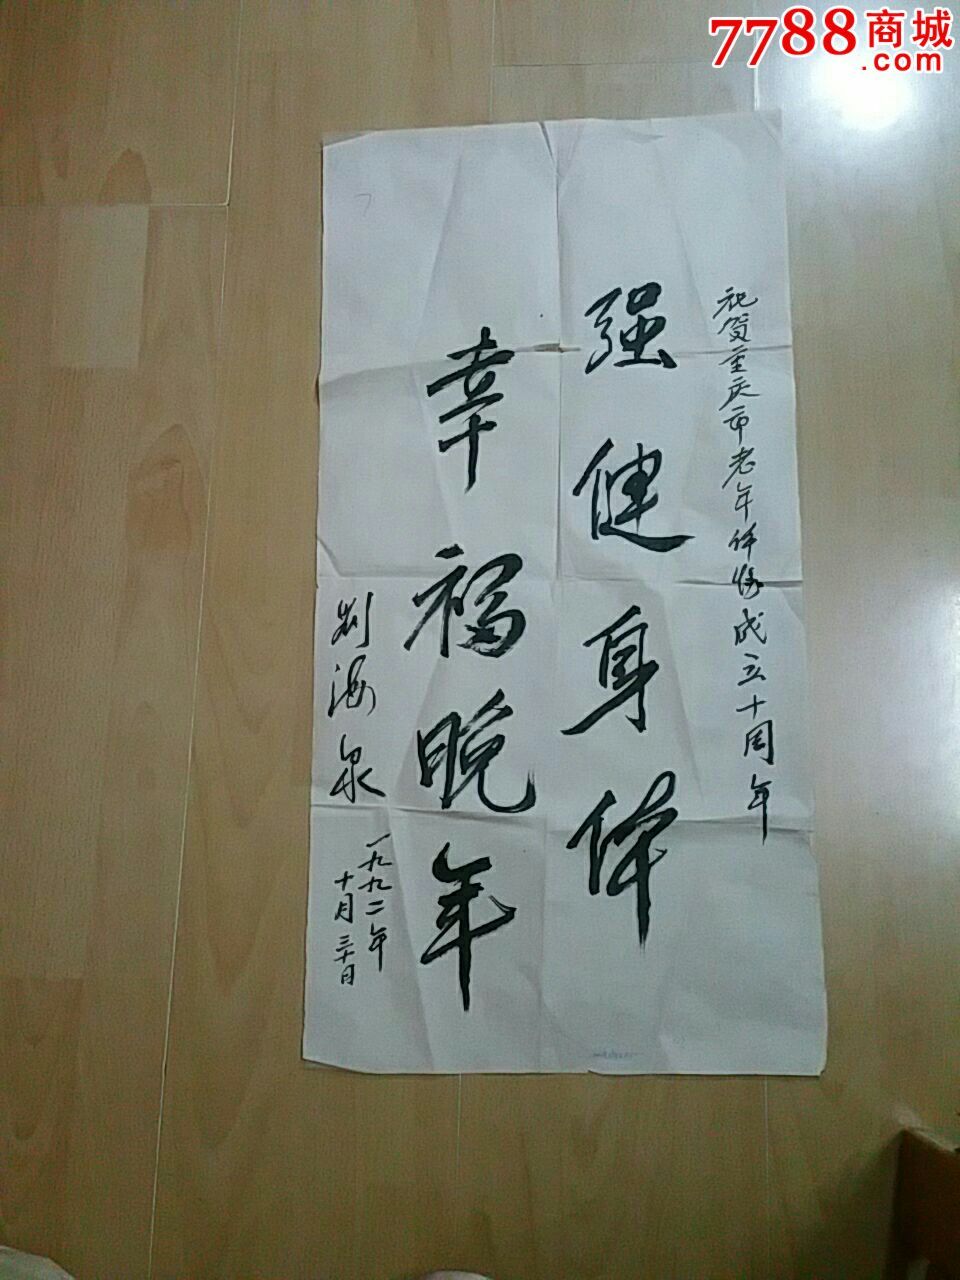 7788商城
.com
祝贺重庆市老年体协成立十周年
强健身体
幸福晚年
刘海泉
一九九二年
十月三十日